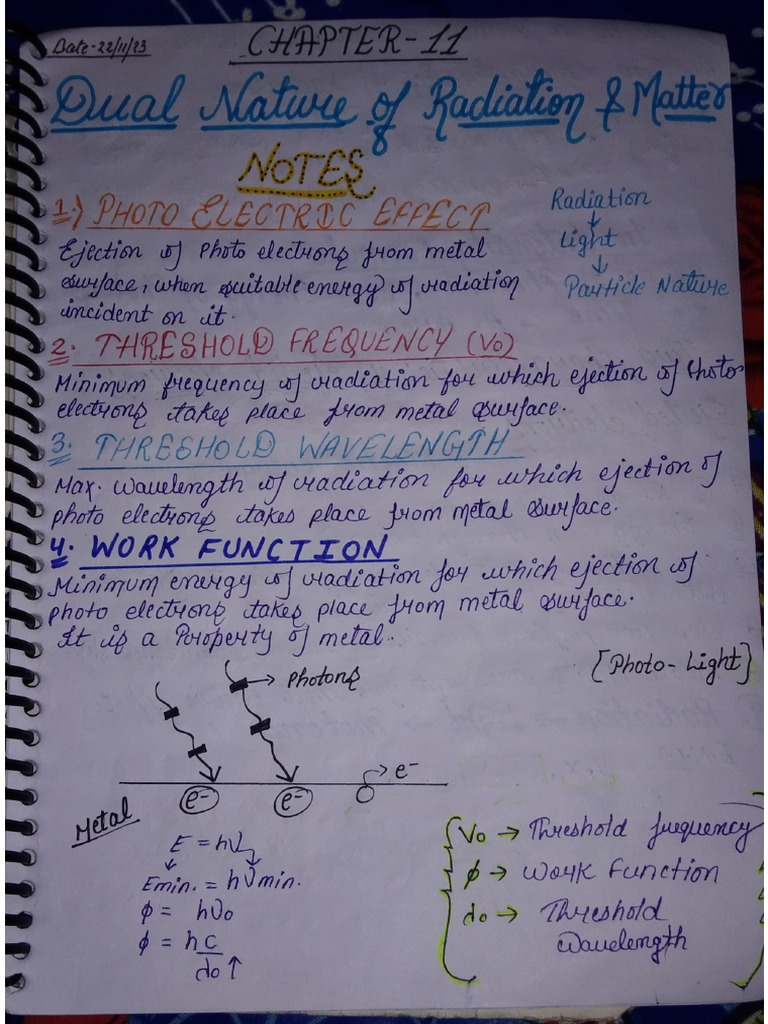 Date-22/11/23
CHAPTER-11
Dual Nature of Radiation & Matter
NOTES
1.) PHOTO ELECTRIC EFFECT
Ejection of Photo electrons from metal
surface, when suitable energy of radiation
incident on it.
Radiation
↓
Light
↓
Particle Nature
2. THRESHOLD FREQUENCY (νo)
Minimum frequency of radiation for which ejection of Photo
electrons takes place from metal surface.
3. THRESHOLD WAVELENGTH
Max. wavelength of radiation for which ejection of
photo electrons takes place from metal surface.
4. WORK FUNCTION
Minimum energy of radiation for which ejection of
photo electrons takes place from metal surface.
It is a Property of metal.
[Photo-Light]
→ Photons
e-
e-
→ e-
Metal
E = hν
Emin. = hνmin.
ϕ = hνo
ϕ = hc
λo ↑
νo → Threshold frequency
ϕ → Work Function
λo → Threshold
Wavelength